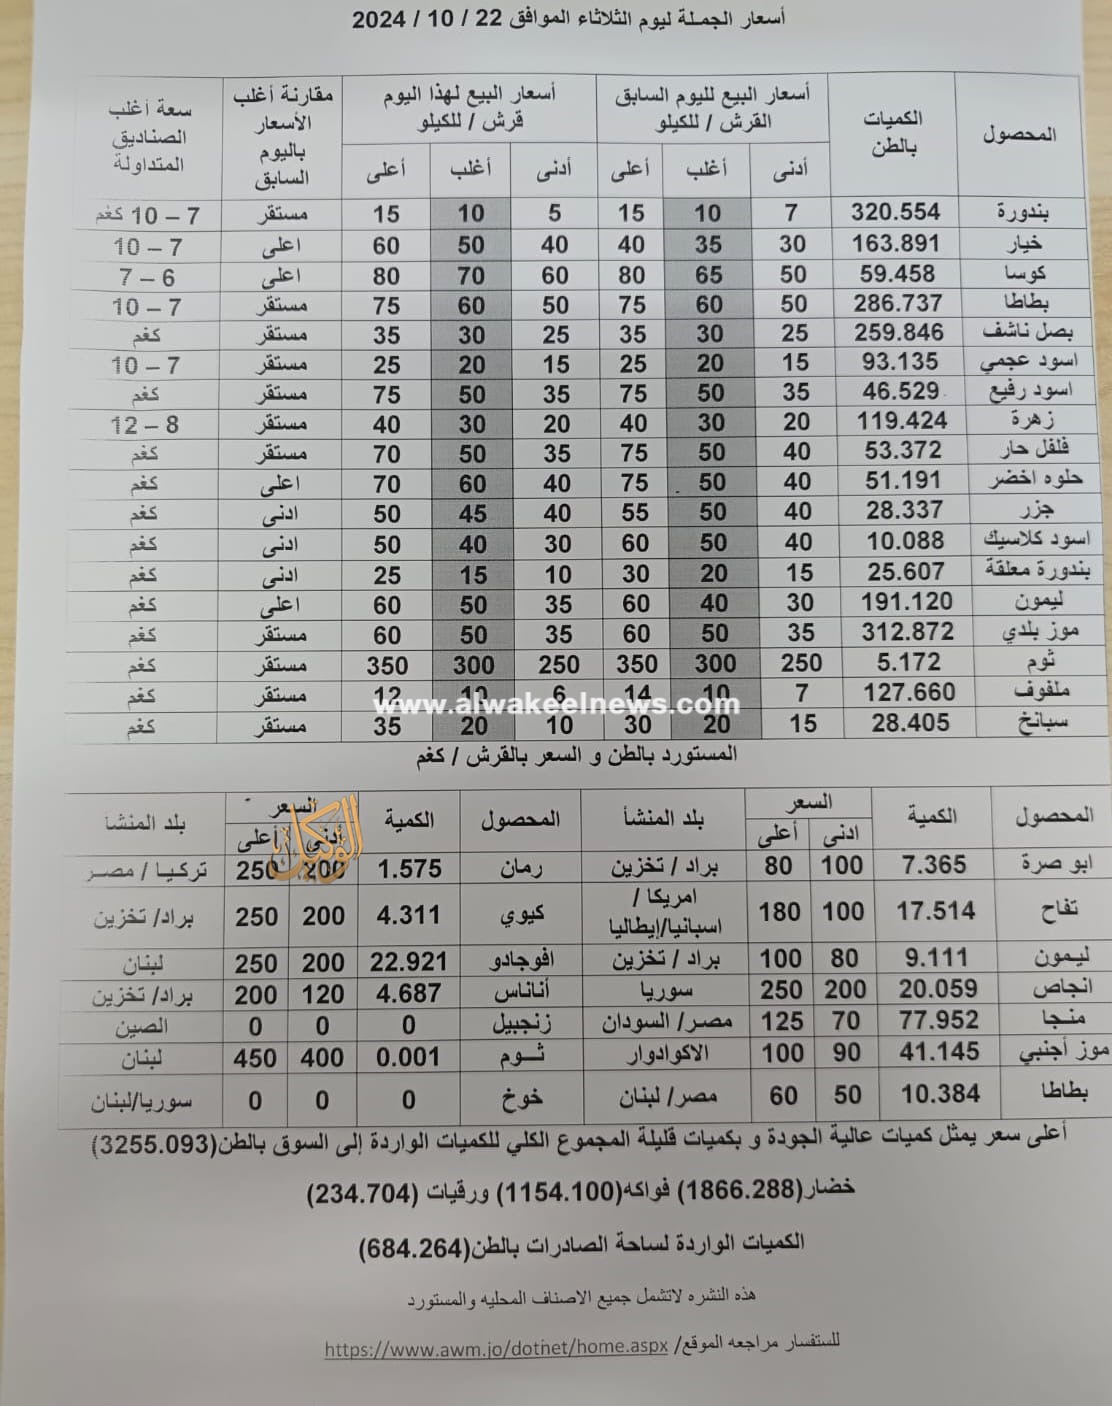 أسعار الجملة ليوم الثلاثاء الموافق 22 / 10 / 2024
المحصول الكميات بالطن أسعار البيع لليوم السابق القرش / للكيلو أسعار البيع لهذا اليوم قرش / للكيلو مقارنة أغلب الأسعار باليوم السابق سعة أغلب الصناديق المتداولة
أدنى أغلب أعلى أدنى أغلب أعلى
بندورة 320.554 7 10 15 5 10 15 مستقر 7 – 10 كغم
خيار 163.891 30 35 40 40 50 60 اعلى 7 – 10
كوسا 59.458 50 65 80 60 70 80 اعلى 6 – 7
بطاطا 286.737 50 60 75 50 60 75 مستقر 7 – 10
بصل ناشف 259.846 25 30 35 25 30 35 مستقر كغم
اسود عجمي 93.135 15 20 25 15 20 25 مستقر 7 – 10
اسود رفيع 46.529 35 50 75 35 50 75 مستقر كغم
زهرة 119.424 20 30 40 20 30 40 مستقر 8 – 12
فلفل حار 53.372 40 50 75 35 50 70 مستقر كغم
حلوه اخضر 51.191 40 50 75 40 60 70 اعلى كغم
جزر 28.337 40 50 55 40 45 50 ادنى كغم
اسود كلاسيك 10.088 40 50 60 30 40 50 ادنى كغم
بندورة معلقة 25.607 15 20 30 10 15 25 ادنى كغم
ليمون 191.120 30 40 60 35 50 60 اعلى كغم
موز بلدي 312.872 35 50 60 35 50 60 مستقر كغم
ثوم 5.172 250 300 350 250 300 350 مستقر كغم
ملفوف 127.660 7 10 14 6 10 12 مستقر كغم
www.alwakeelnews.com
سبانخ 28.405 15 20 30 10 20 35 مستقر كغم
المستورد بالطن و السعر بالقرش / كغم
المحصول الكمية السعر بلد المنشأ المحصول الكمية السعر بلد المنشأ
ادنى أعلى أدنى أعلى
الوكيل
ابو صرة 7.365 100 80 براد / تخزين رمان 1.575 200 250 تركيا / مصر
تفاح 17.514 100 180 امريكا / اسبانيا/إيطاليا كيوي 4.311 200 250 براد/ تخزين
ليمون 9.111 80 100 براد / تخزين افوجادو 22.921 200 250 لبنان
انجاص 20.059 200 250 سوريا أناناس 4.687 120 200 براد/ تخزين
منجا 77.952 70 125 مصر/ السودان زنجبيل 0 0 0 الصين
موز أجنبي 41.145 90 100 الاكوادوار ثوم 0.001 400 450 لبنان
بطاطا 10.384 50 60 مصر/ لبنان خوخ 0 0 0 سوريا/لبنان
أعلى سعر يمثل كميات عالية الجودة و بكميات قليلة المجموع الكلي للكميات الواردة إلى السوق بالطن(3255.093)
خضار(1866.288) فواكه(1154.100) ورقيات (234.704)
الكميات الواردة لساحة الصادرات بالطن(684.264)
هذه النشره لاتشمل جميع الاصناف المحليه والمستورد
للستفسار مراجعه الموقع/ https://www.awm.jo/dotnet/home.aspx